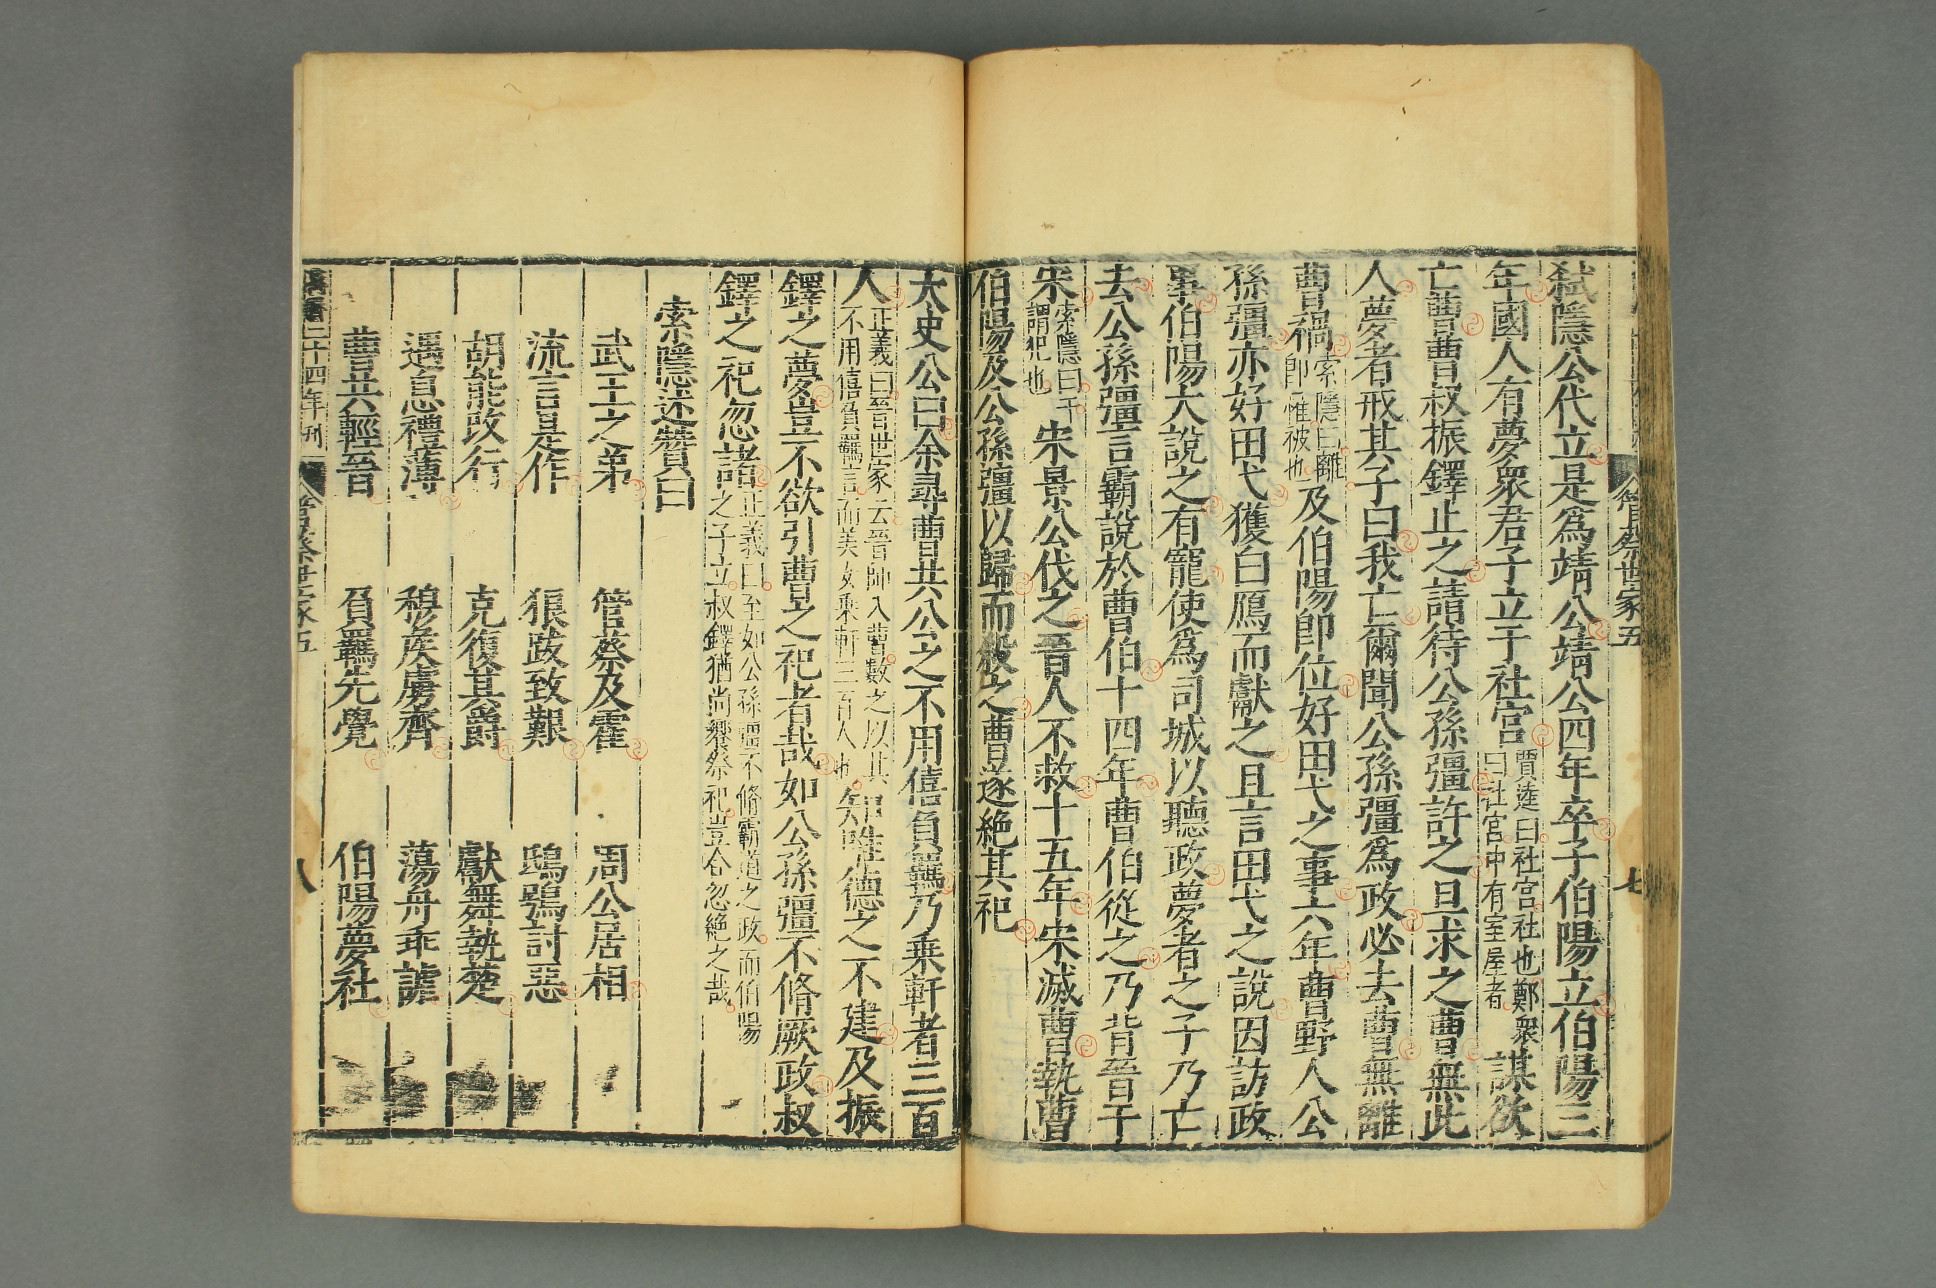 管蔡世家五
七
弒隱公代立是爲靖公靖公四年卒子伯陽立伯陽三
年國人有夢衆君子立于社宮賈逵曰社宮社也鄭衆曰社宮中有室屋者謀欲
亡曹曹叔振鐸止之請待公孫彊許之旦求之曹無此
人夢者戒其子曰我亡爾聞公孫彊爲政必去曹無離
曹禍索隱曰離即罹被也及伯陽即位好田弋之事六年曹野人公
孫彊亦好田弋獲白鴈而獻之且言田弋之說因訪政
事伯陽大說之有寵使爲司城以聽政夢者之子乃亡
去公孫彊言霸說於曹伯十四年曹伯從之乃背晉干
宋索隱曰干謂犯也宋景公伐之晉人不救十五年宋滅曹執曹
伯陽及公孫彊以歸而殺之曹遂絶其祀
太史公曰余尋曹共公之不用僖負羈乃乗軒者三百
人正義曰晉世家云晉師入曹數之以其不用僖負羈言而美女乘軒三百人也知唯德之不建及振
鐸之夢豈不欲引曹之祀者哉如公孫彊不脩厥政叔
鐸之祀忽諸正義曰至如公孫彊不脩霸道之政而伯陽之子立叔鐸猶尚饗祭祀豈合忽絶之哉
索隱述贊曰
武王之弟　管蔡及霍　周公居相
流言是作　狼跋致艱　鴟鴞討惡
胡能改行　克復其爵　獻舞執楚
遇息禮薄　穆侯虜齊　蕩舟乖謔
曹共輕晉　負羈先覺　伯陽夢社
二十四年刊
管蔡世家五
八